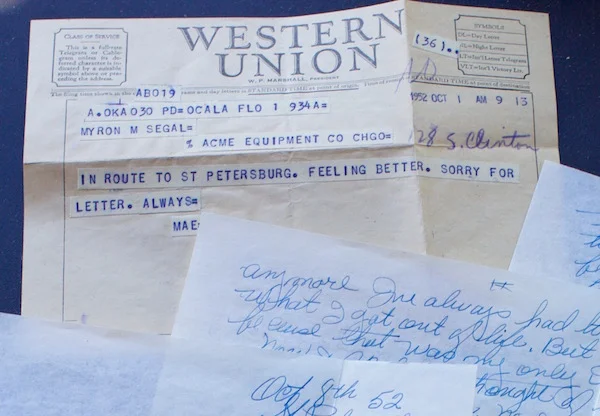 CLASS OF SERVICE
This is a full-rate
Telegram or Cable-
gram unless its de-
ferred character is in-
dicated by a suitable
symbol above or pre-
ceding the address.
WESTERN
UNION
W. P. MARSHALL, PRESIDENT
(36)..
SYMBOLS
DL=Day Letter
NL=Night Letter
LT=Int'l Letter Telegram
VLT=Int'l Victory Ltr.
The filing time shown in the date line on telegrams and day letters is STANDARD TIME at point of origin. Time of receipt is STANDARD TIME at point of destination
AB019
1952 OCT 1 AM 9 13
A.OKA030 PD=OCALA FLO 1 934A=
MYRON M SEGAL=
% ACME EQUIPMENT CO CHGO=
128 S. Clinton
IN ROUTE TO ST PETERSBURG. FEELING BETTER. SORRY FOR
LETTER. ALWAYS=
MAE=
anymore I've always had
what I got out of life. But
because that was my only
thought
Oct 8th 52